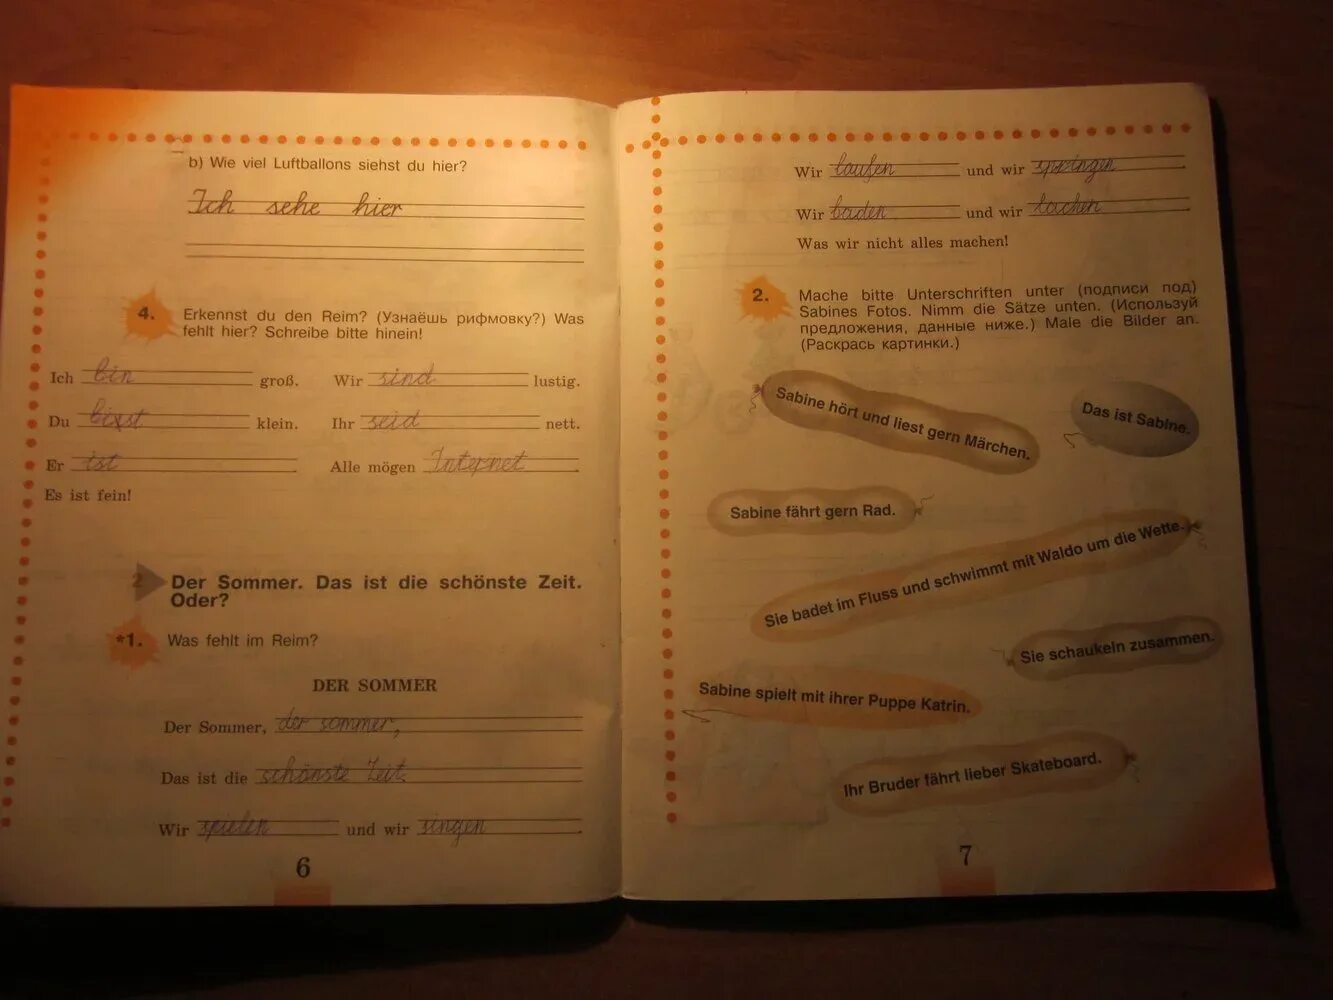 b) Wie viel Luftballons siehst du hier?
Ich sehe hier
4. Erkennst du den Reim? (Узнаёшь рифмовку?) Was
fehlt hier? Schreibe bitte hinein!
Ich bin groß. Wir sind lustig.
Du bist klein. Ihr seid nett.
Er ist Alle mögen Internet
Es ist fein!
2 Der Sommer. Das ist die schönste Zeit.
Oder?
*1. Was fehlt im Reim?
DER SOMMER
Der Sommer, der sommer,
Das ist die schönste Zeit.
Wir spielen und wir singen
6
Wir laufen und wir springen
Wir baden und wir lachen
Was wir nicht alles machen!
2. Mache bitte Unterschriften unter (подписи под)
Sabines Fotos. Nimm die Sätze unten. (Используй
предложения, данные ниже.) Male die Bilder an.
(Раскрась картинки.)
Sabine hört und liest gern Märchen.
Das ist Sabine.
Sabine fährt gern Rad.
Sie badet im Fluss und schwimmt mit Waldo um die Wette.
Sie schaukeln zusammen.
Sabine spielt mit ihrer Puppe Katrin.
Ihr Bruder fährt lieber Skateboard.
7